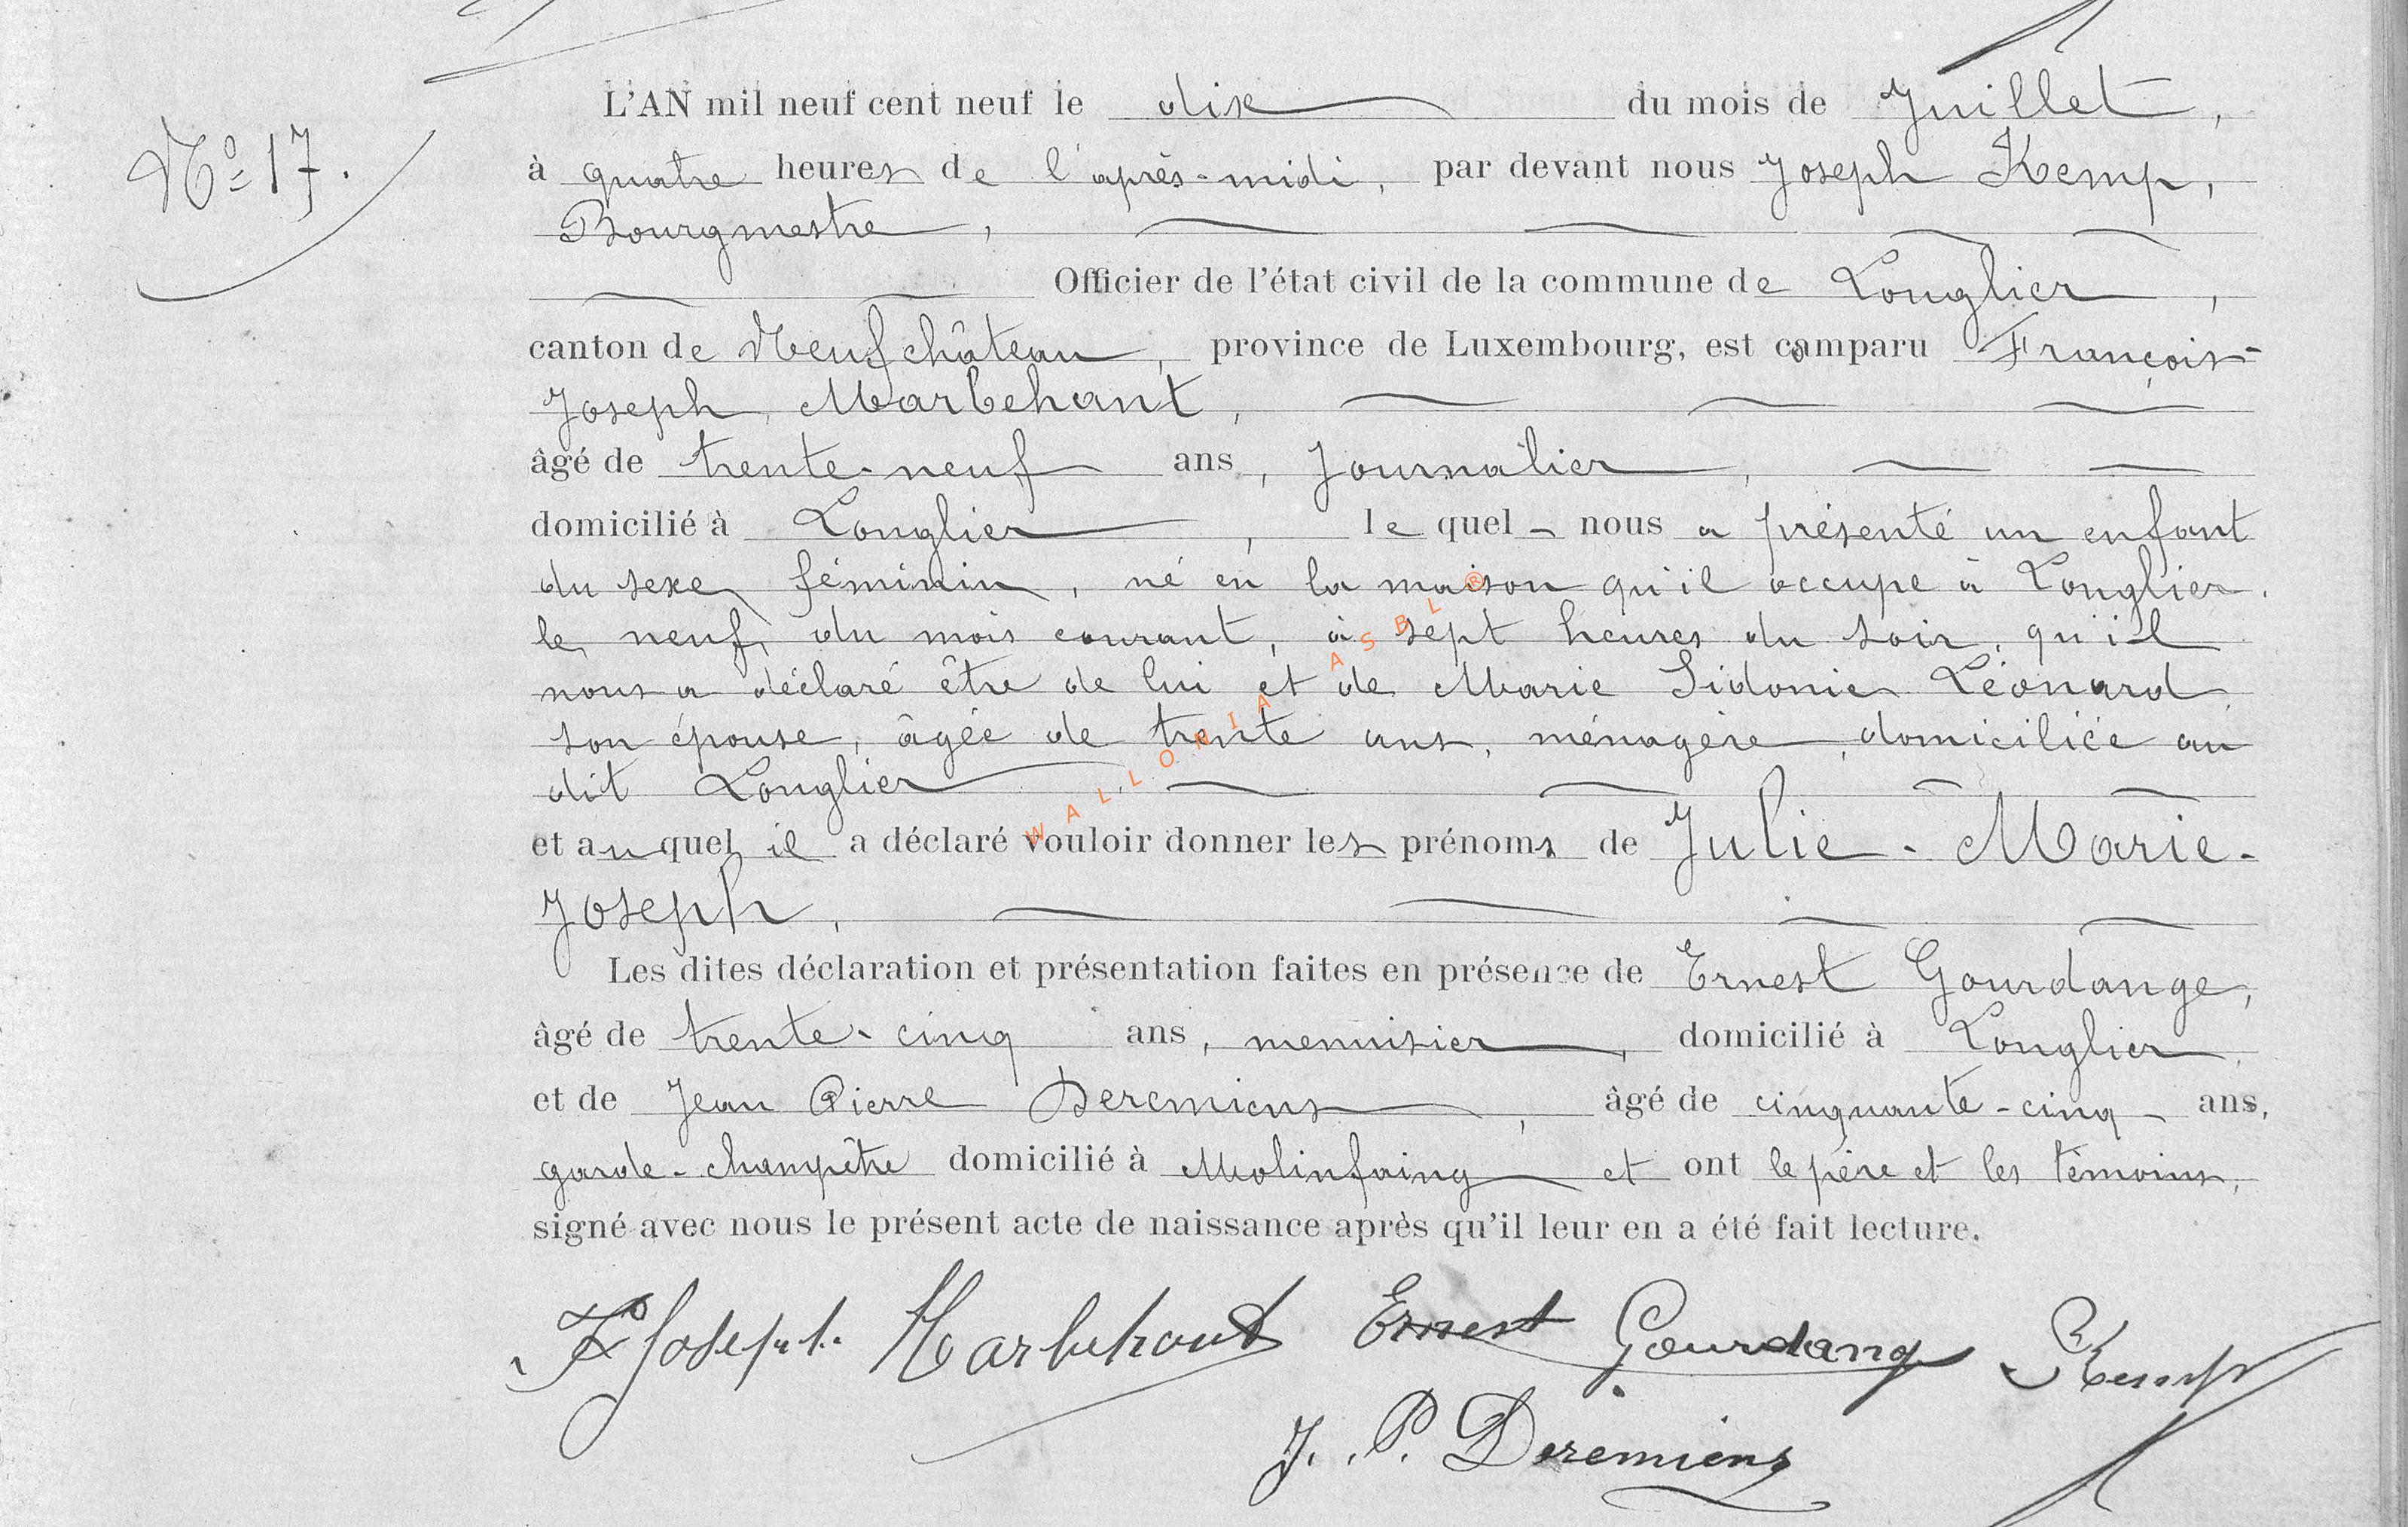 L'AN mil neuf cent neuf le dix du mois de Juillet,
N° 17.
à quatre heures de l'après-midi, par devant nous Joseph Kemp,
Bourgmestre,
Officier de l'état civil de la commune de Longlier,
canton de Neufchâteau, province de Luxembourg, est comparu François-
Joseph Marbehant,
âgé de trente-neuf ans, Journalier,
domicilié à Longlier, le quel nous a présenté un enfant
du sexe féminin, né en la maison qu'il occupe à Longlier.
le neuf du mois courant, à sept heures du soir, qu'il
nous a déclaré être de lui et de Marie Sidonie Léonard
son épouse, âgée de trente ans, ménagère, domiciliée au
dit Longlier
et au quel il a déclaré vouloir donner les prénoms de Julie-Marie-
Joseph,
Les dites déclaration et présentation faites en présence de Ernest Gourdange,
âgé de trente-cinq ans, menuisier, domicilié à Longlier,
et de Jean Pierre Deremiens, âgé de cinquante-cinq ans,
garde-champêtre domicilié à Molinfaing et ont le père et les témoins,
signé avec nous le présent acte de naissance après qu'il leur en a été fait lecture.
Fs Joseph Marbehant Ernest Gourdang Kemp
J. P. Deremiens
WALLONIA ASBL ®